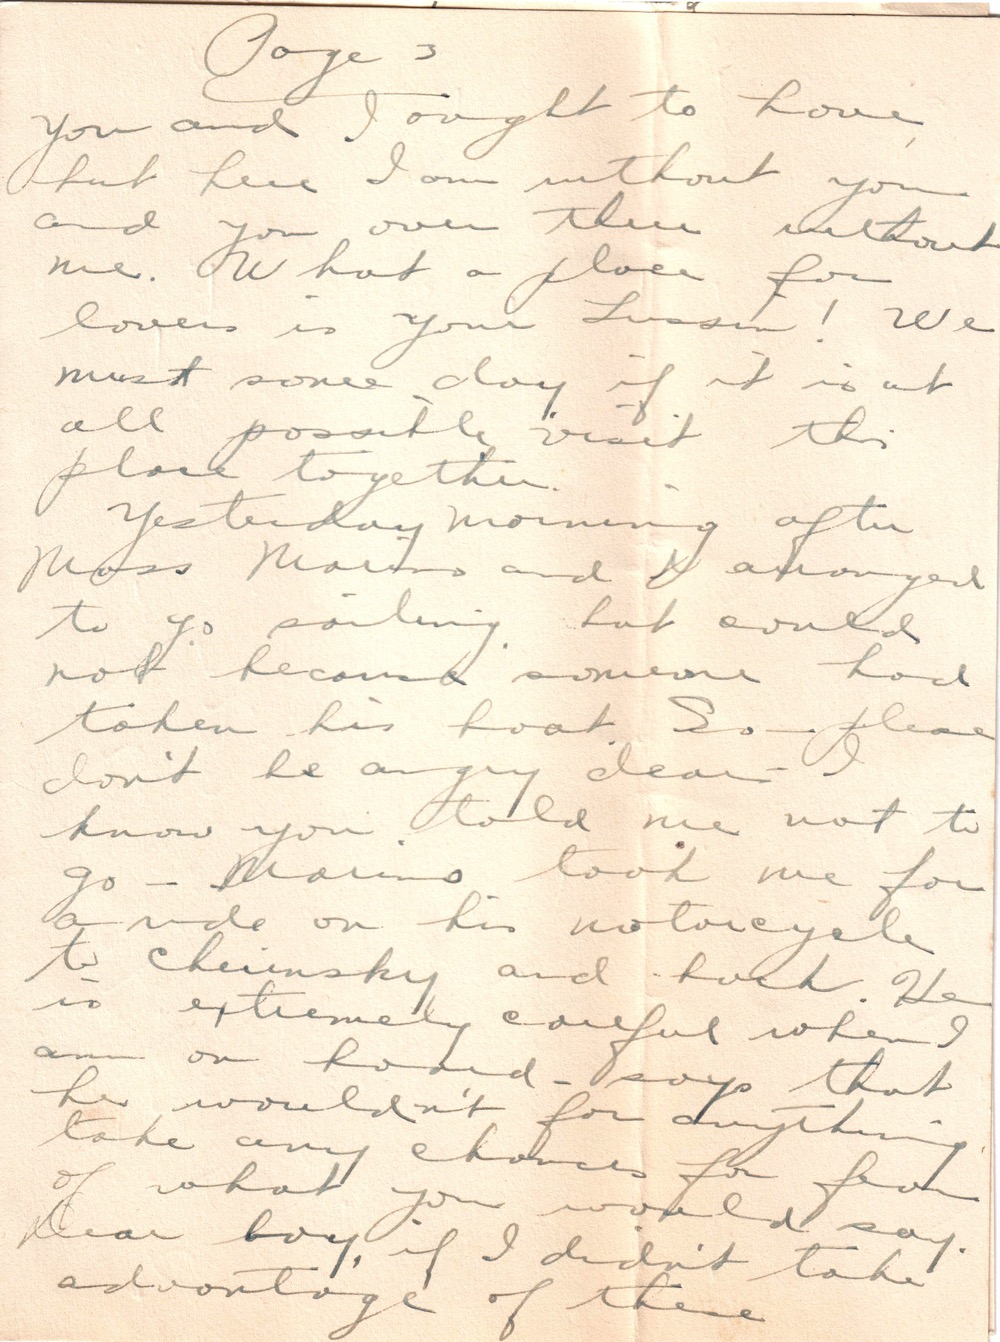 Page 3
you and I ought to have,
but here I am without you
and you over there without
me. What a place for
lovers is your Lussin! We
must some day if it is at
all possible, visit this
place together.
Yesterday morning after
Mass Marino and I arranged
to go sailing, but could
not because someone had
taken his boat. So - please
don't be angry dear - I
know you told me not to
go - Marino took me for
a ride on his motorcycle
to and back. He
is extremely careful when I
am on board - says that
he wouldn't for anything
take any chances for fear
of what you would say.
Dear boy, if I didn't take
advantage of these